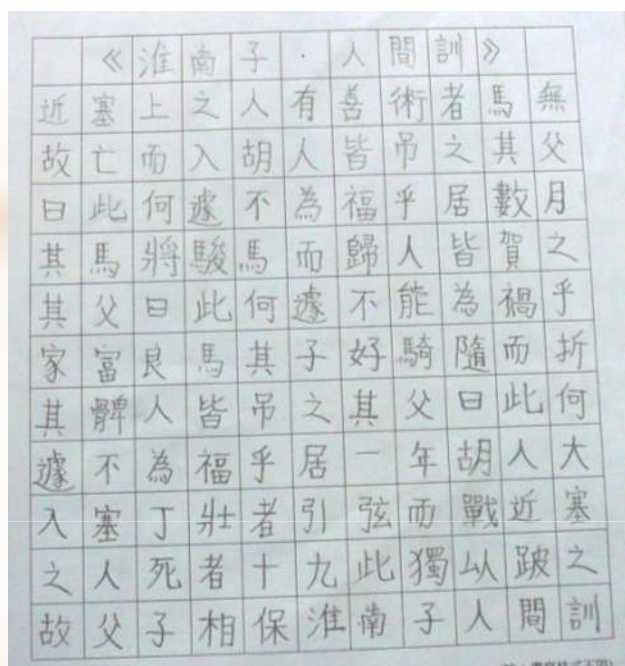 《淮南子·人間訓》
近塞上之人有善術者馬無
故亡而入胡人皆吊之其父
曰此何遽不為福乎居數月
其馬將駿馬而歸人皆賀之
其父曰此何遽不能為禍乎
家富良馬其子好騎隨而折
其髀人皆吊之其父曰此何
遽不為福乎居一年胡人大
入塞丁壯者引弦而戰近塞
之人死者十九此獨以跛之
故父子相保淮南子人間訓